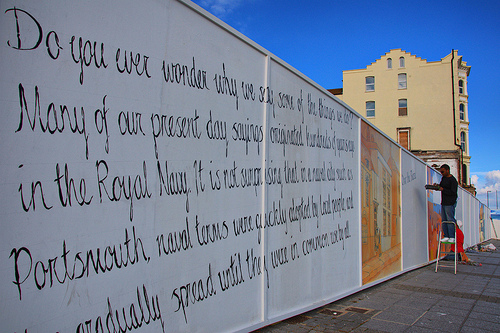 Do you ever wonder why we say some of the things we do?
Many of our present day sayings originated hundreds of years ago
in the Royal Navy. It is not surprising that in a naval city such as
Portsmouth, naval terms were quickly adopted by local people and
gradually spread until they were in common use by all.